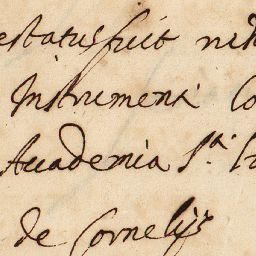 estatus fuit
Instrumenti
Accademia S.ti
de Cornelijs